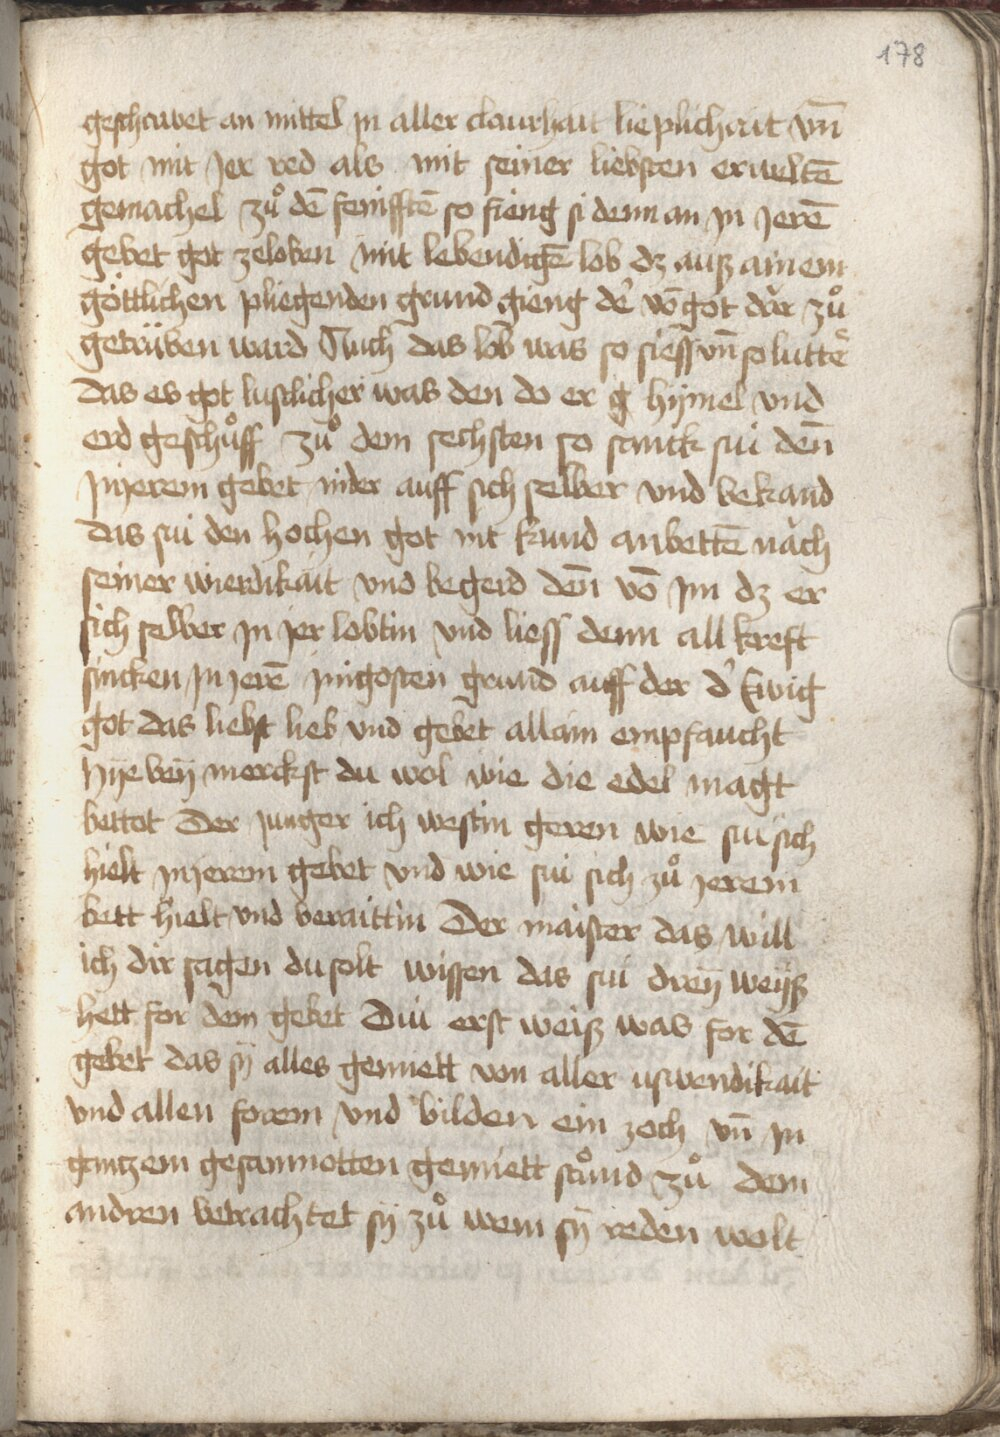 178
geschauet an mittel in aller claurhait lieplichait vn̄
got mit Jer red als mit seiner liebsten erweltē
gemachel zuͦ dē femifftē so fieng si denn an in Jerē
gebet got zeloben mit lebendigē lob dz auß ainem
göttlichen pliegenden grund gieng de᷎ vō got dar zuͦ
getrüben ward Auch das lob was so siess vn̄ so lutte᷎
das es got lustlicher was den do er g hÿmel vnd
erd geschuͦff zuͦ dem sechsten so sanck sui den̄
in jerem gebet nider auff sich selber vnd bekand
das sui den hochen got nit kund anbettē nach
seiner wierdikait vnd begerd den̄ vō im dz er
sich selber in jer lobtin vnd liess denn all kreft
sincken in jerē jnigosten grund auff der d᷎ Ewig
got das liebst lieb vnd gebet allain empfaucht
hÿe beÿ merckst du wol wie die edel magt
bettot Der junger ich westin geren wie sui sich
hielt in jerem gebet vnd wie sui sich zuͦ jerem
bett hielt vnd beraittin Der maister das will
ich dir sagen du solt wissen das sui dreÿ weÿß
hett for dem gebet Diu erst weiß was for dē
gebet das sÿ alles gemiett von aller uswendikait
vnd allen forem vnd bilden ein zoch vn̄ in
gantzem gesamnotten gemiett stuͦnd zuͦ dem
andren betrachtet sÿ zuͦ wem sÿ reden welt